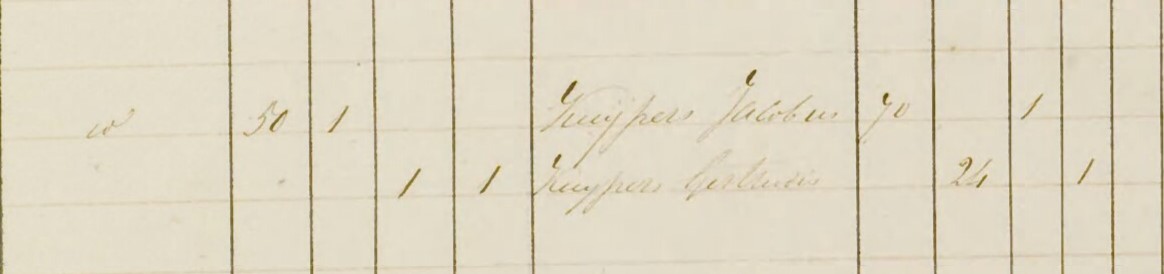 id 50 1 Kuijpers Jacobus 70 1
1 1 Kuijpers Gertrudis 24 1